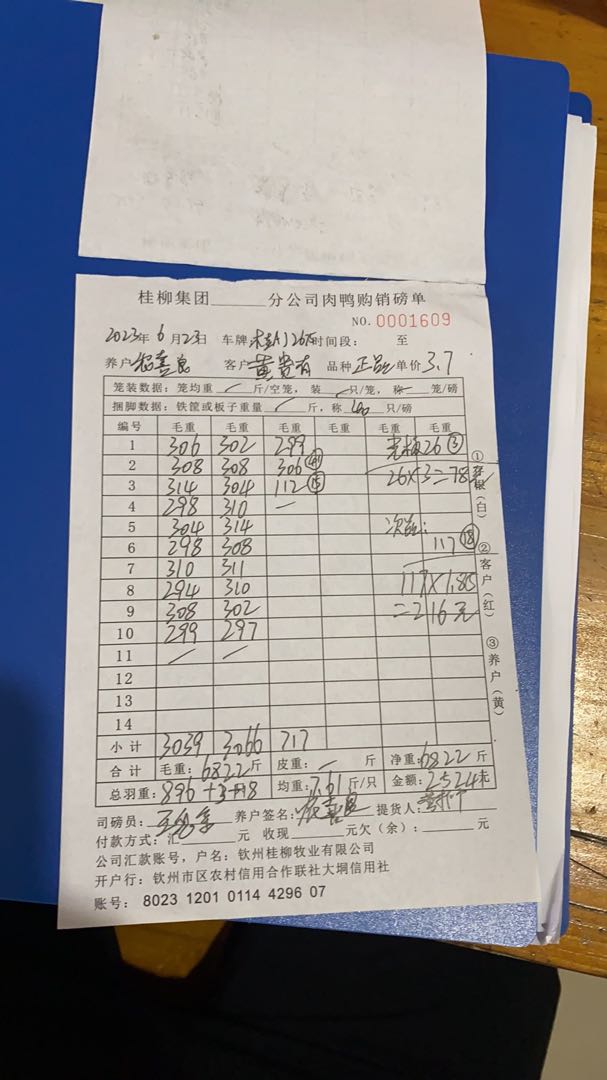 桂柳集团______分公司肉鸭购销磅单
NO.0001609
2023年6月23日 车牌 时间段: 至
养户 客户 黄贵有 品种 正品 单价 3.7
笼装数据: 笼均重 / 斤/空笼, 装 / 只/笼, 称 / 笼/磅
捆脚数据: 铁筐或板子重量 / 斤, 称 40 只/磅
编号 毛重 毛重 毛重 毛重 毛重 毛重
1 306 302 299 26 ③
2 308 308 306 ㊶
3 314 304 112 ⑮ 26×3=78元
4 298 310 —
5 304 314 次品:
6 298 308 117 ⑱
7 310 311
8 294 310 117×1.85
9 308 302 =216元
10 299 297
11 / /
12
13
14
小计 3039 3066 717
合计 毛重: 6822斤 皮重: — 斤 净重: 6822斤
总羽重: 896+3+18 均重: 7.61斤/只 金额: 25241元
①存根(白)
②客户(红)
③养户(黄)
司磅员: 养户签名: 提货人:
付款方式: 汇______元 收现______元欠(余):______元
公司汇款账号, 户名: 钦州桂柳牧业有限公司
开户行: 钦州市区农村信用合作联社大垌信用社
账号: 8023 1201 0114 4296 07